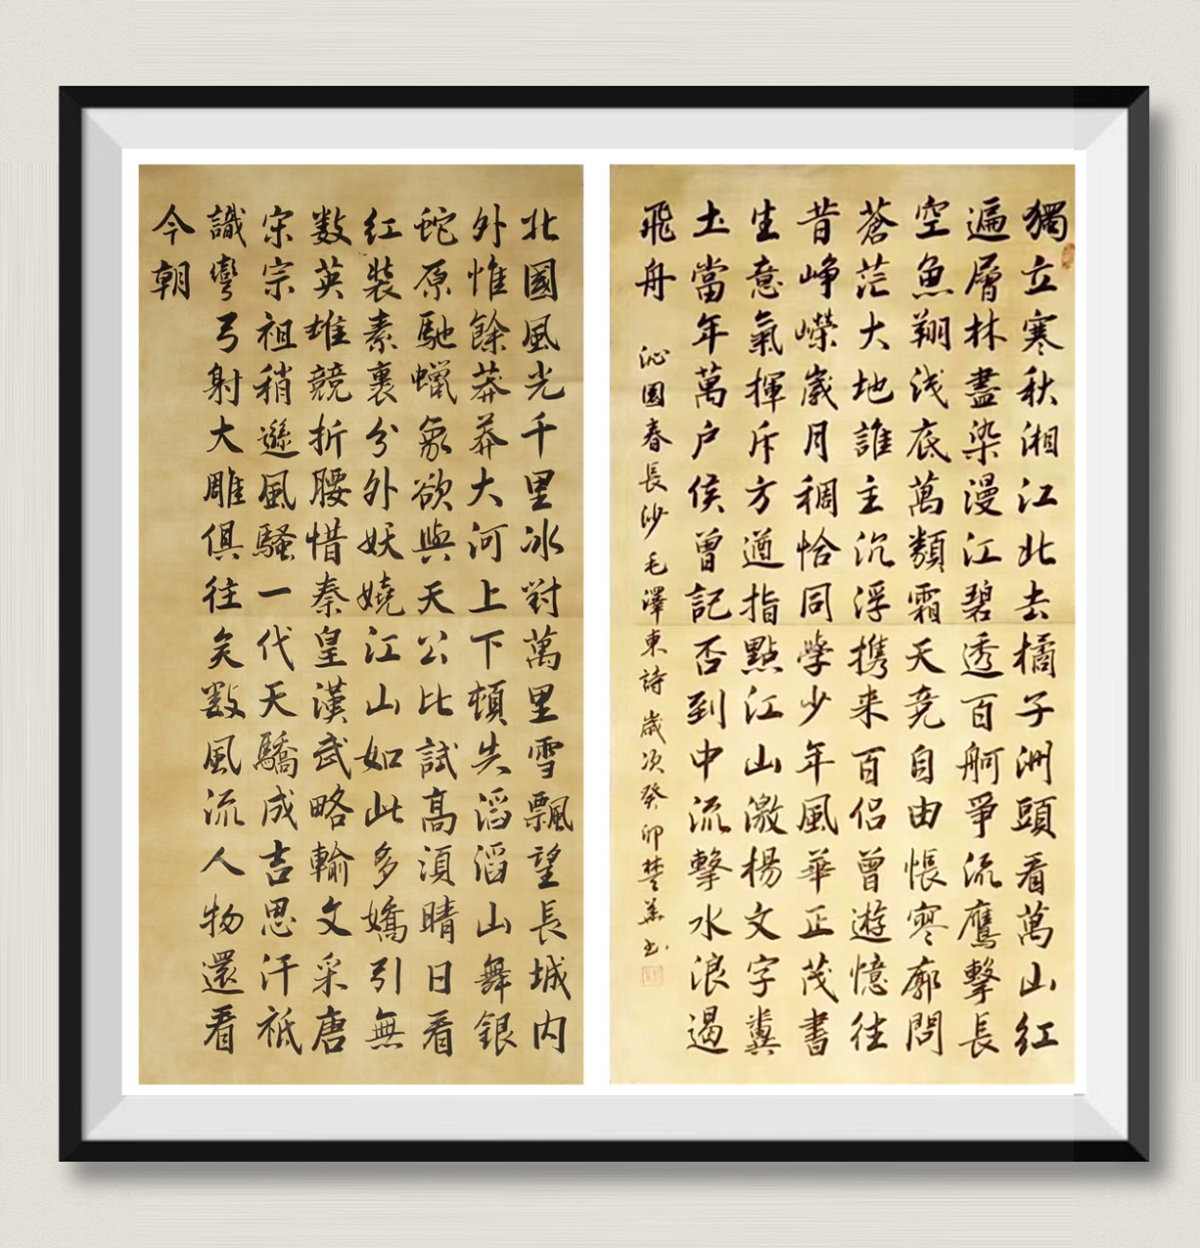 獨立寒秋湘江北去橘子洲頭看萬山紅
遍層林盡染漫江碧透百舸爭流鷹擊長
空魚翔浅底萬類霜天竞自由悵寥廓問
蒼茫大地誰主沉浮携来百侣曾遊憶往
昔峥嶸歲月稠恰同學少年風華正茂書
生意氣揮斥方遒指點江山激楊文字糞
土當年萬户侯曾記否到中流擊水浪遏
飛舟 沁園春長沙毛澤東詩 歲次癸卯楚书
北國風光千里冰對萬里雪飄望長城内
外惟餘莽莽大河上下頓失滔滔山舞銀
蛇原馳蠟象欲與天公比試高湏晴日看
红裝素裹分外妖嬈江山如此多嬌引無
数英雄競折腰惜秦皇漢武略輸文采唐
宋宗祖稍遜風騷一代天驕成吉思汗祗
識彎弓射大雕俱往矣数風流人物還看
今朝